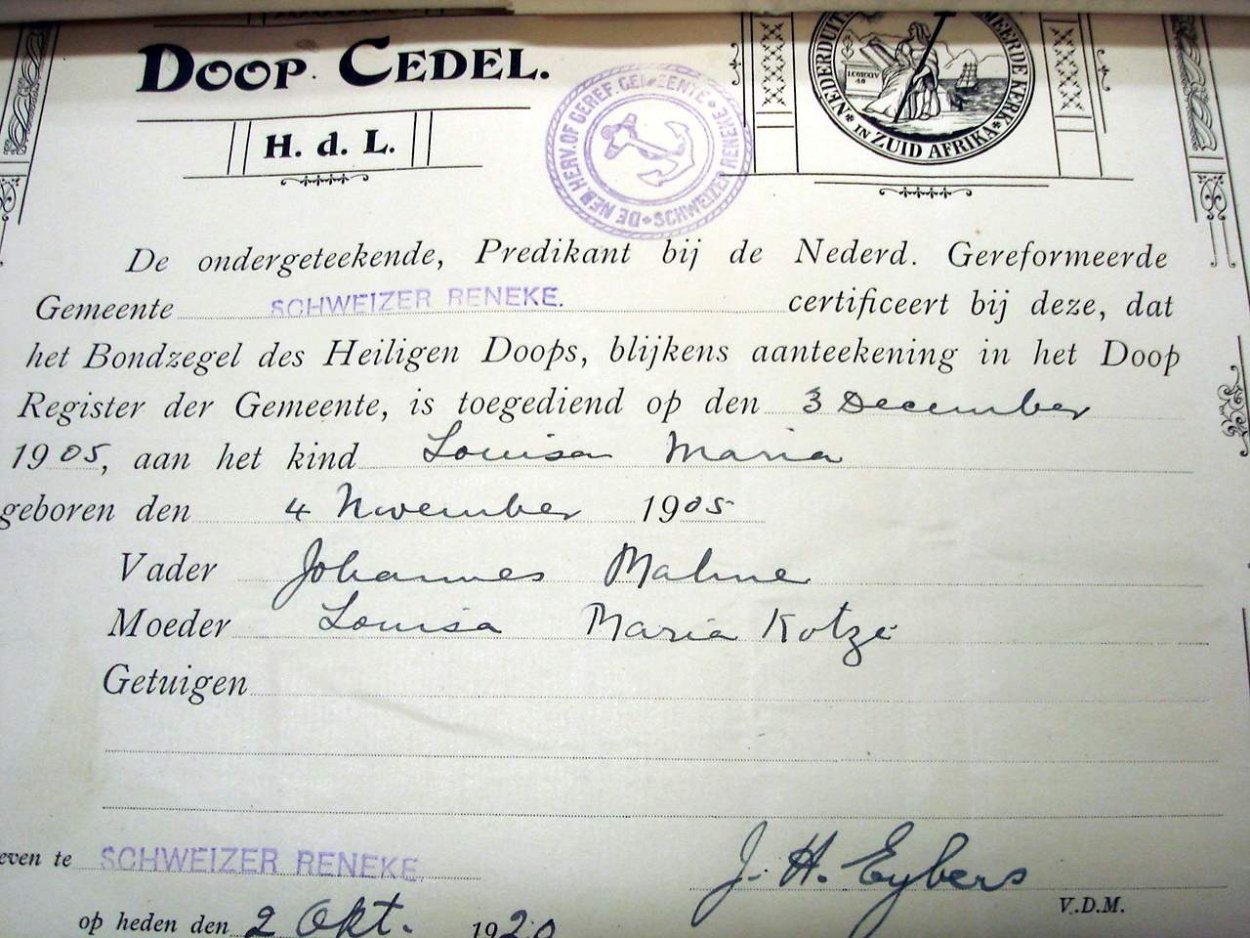 DOOP CEDEL.
H. d. L.
DE NED HERV. OF GEREF. GEMEENTE SCHWEIZER RENEKE
NEDERDUITS MEERDE KERK
IN ZUID AFRIKA
De ondergeteekende, Predikant bij de Nederd. Gereformeerde
Gemeente SCHWEIZER RENEKE. certificeert bij deze, dat
het Bondzegel des Heiligen Doops, blijkens aanteekening in het Doop
Register der Gemeente, is toegediend op den 3 December
1905, aan het kind Louisa Maria
geboren den 4 November 1905
Vader Johannes Mahne
Moeder Louisa Maria Kotzé
Getuigen
even te SCHWEIZER RENEKE
J. H. Eybers
V.D.M.
op heden den 2 Okt. 1920